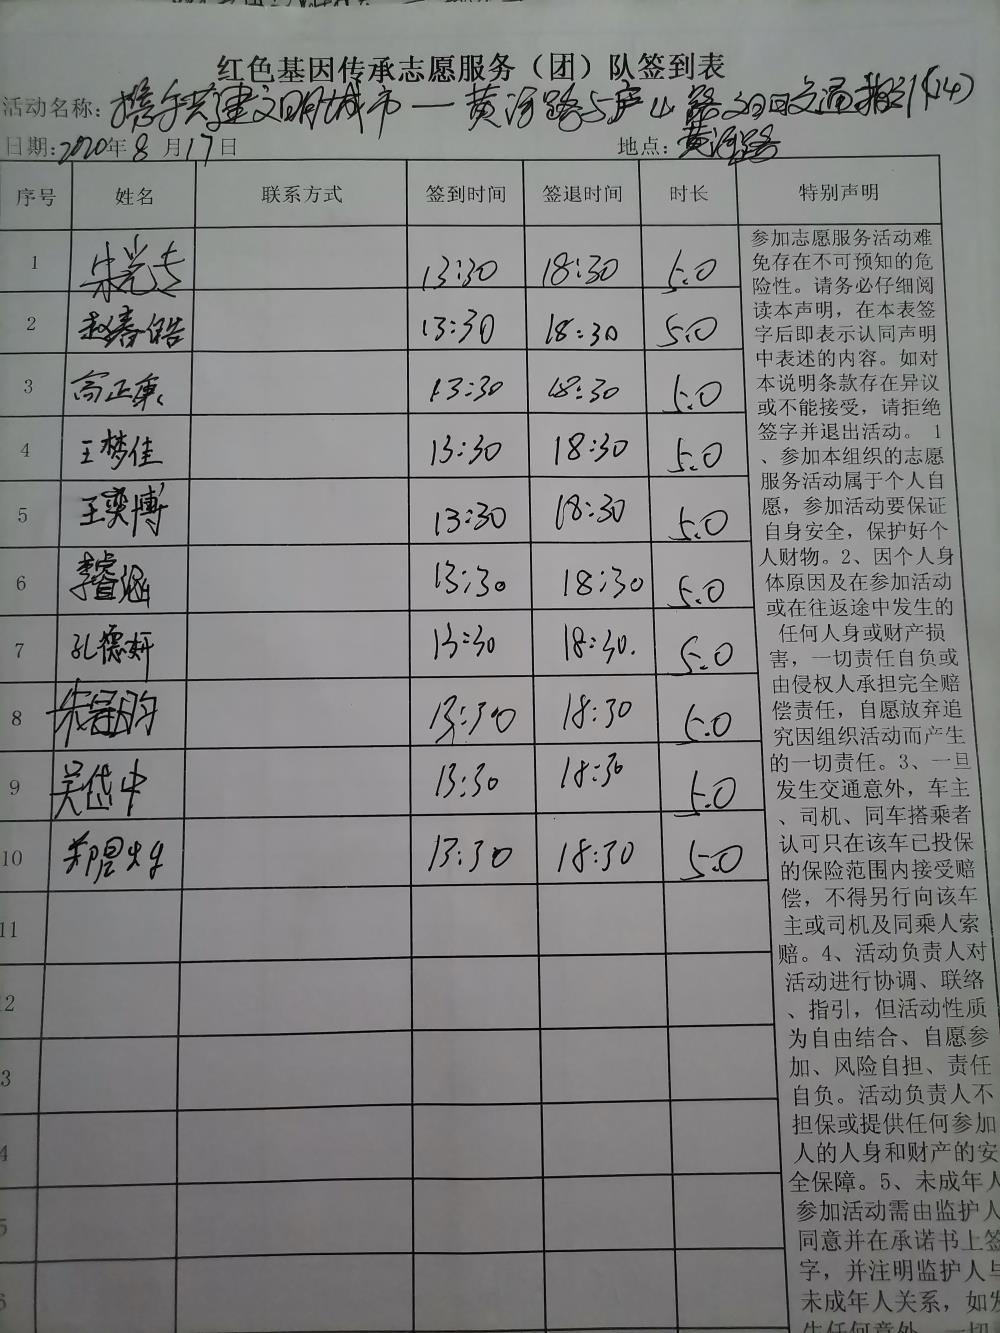 红色基因传承志愿服务（团）队签到表
活动名称：携手共建文明城市一黄河路与庐山路文明交通指引（14）
日期：2020年8月17日 地点：黄河路
序号 姓名 联系方式 签到时间 签退时间 时长 特别声明
1 宋光专 13:30 18:30 5.0
2 赵春皓 13:30 18:30 5.0
3 高正康 13:30 18:30 5.0
4 王梦佳 13:30 18:30 5.0
5 王奕博 13:30 18:30 5.0
6 李睿涵 13:30 18:30 5.0
7 孔德妍 13:30 18:30. 5.0
8 朱冠昀 13:30 18:30 5.0
9 吴岱中 13:30 18:30 5.0
10 郑昱 13:30 18:30 5.0
11
2
3
4
5
6
参加志愿服务活动难
免存在不可预知的危
险性。请务必仔细阅
读本声明，在本表签
字后即表示认同声明
中表述的内容。如对
本说明条款存在异议
或不能接受，请拒绝
签字并退出活动。 1
、参加本组织的志愿
服务活动属于个人自
愿，参加活动要保证
自身安全，保护好个
人财物。2、因个人身
体原因及在参加活动
或在往返途中发生的
任何人身或财产损
害，一切责任自负或
由侵权人承担完全赔
偿责任，自愿放弃追
究因组织活动而产生
的一切责任。3、一旦
发生交通意外，车主
、司机、同车搭乘者
认可只在该车已投保
的保险范围内接受赔
偿，不得另行向该车
主或司机及同乘人索
赔。4、活动负责人对
活动进行协调、联络
、指引，但活动性质
为自由结合、自愿参
加、风险自担、责任
自负。活动负责人不
担保或提供任何参加
人的人身和财产的安
全保障。5、未成年人
参加活动需由监护人
同意并在承诺书上签
字，并注明监护人与
未成年人关系，如发
生任何意外，一切